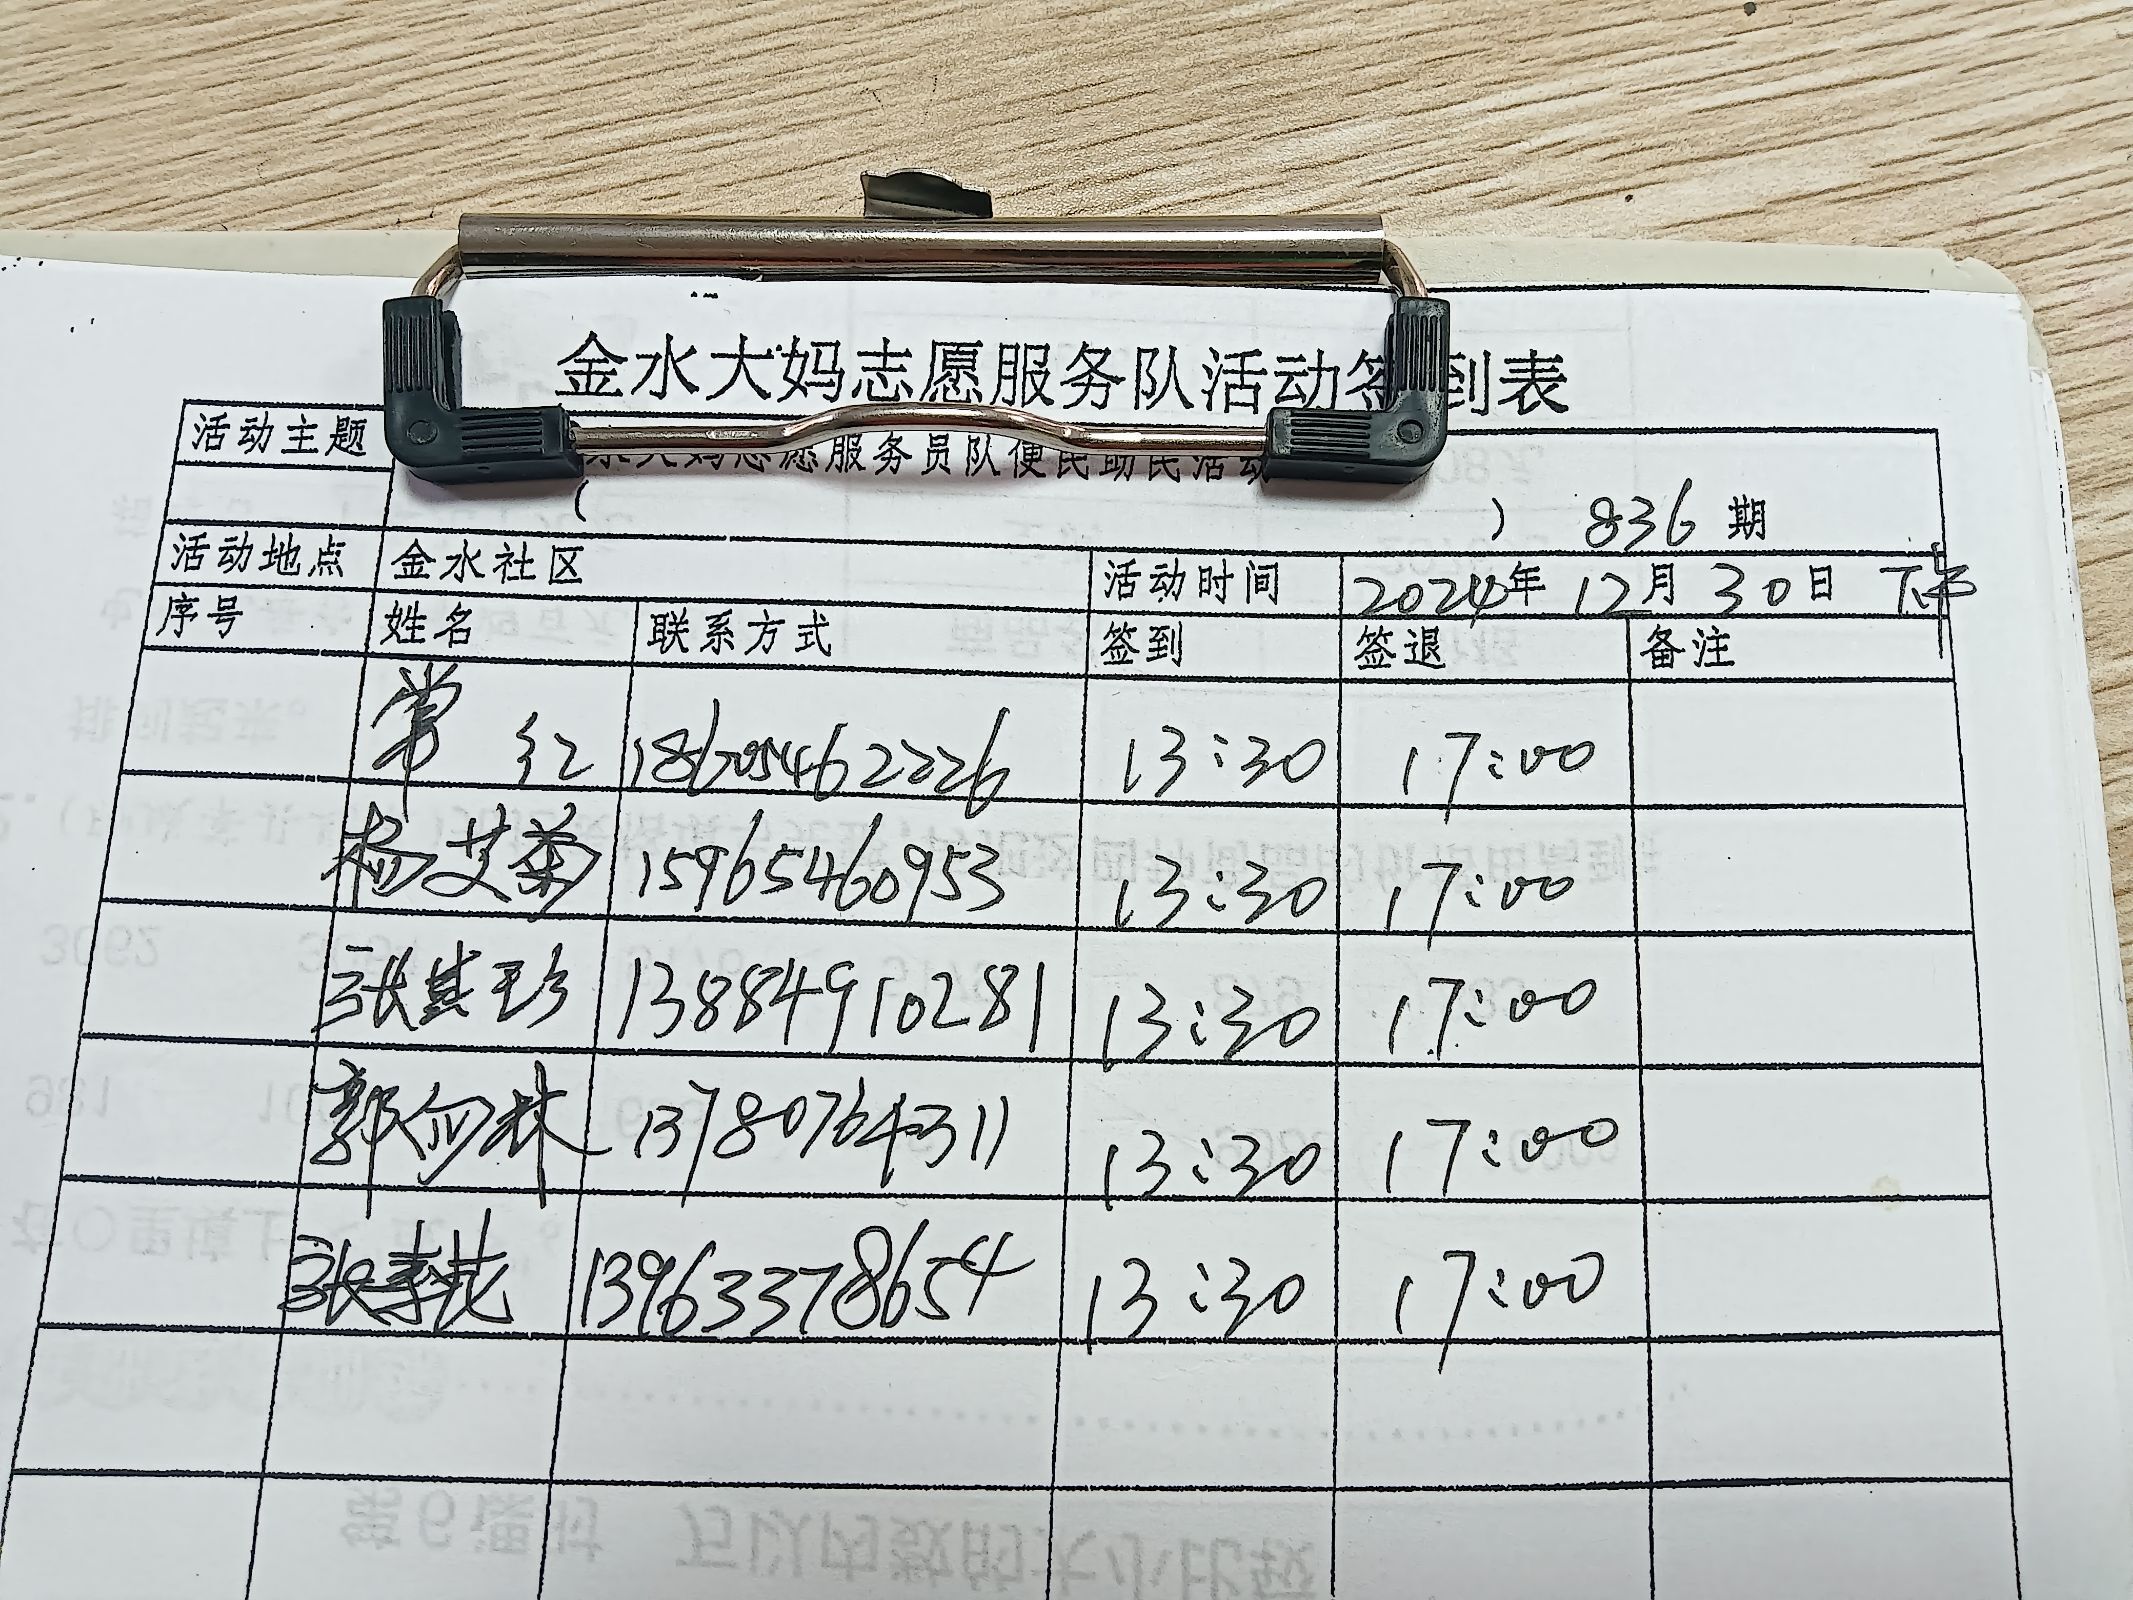 金水大妈志愿服务队活动签到表
活动主题 水大妈志愿服务员队便民助民活动
( ) 836 期
活动地点 金水社区 活动时间 2024年 12月 30日 下午
序号 姓名 联系方式 签到 签退 备注
常 红 18605462226 13:30 17:00
杨艾荣 15965460953 13:30 17:00
张其珍 13884910281 13:30 17:00
郭向林 13780764311 13:30 17:00
张李花 13963378654 13:30 17:00